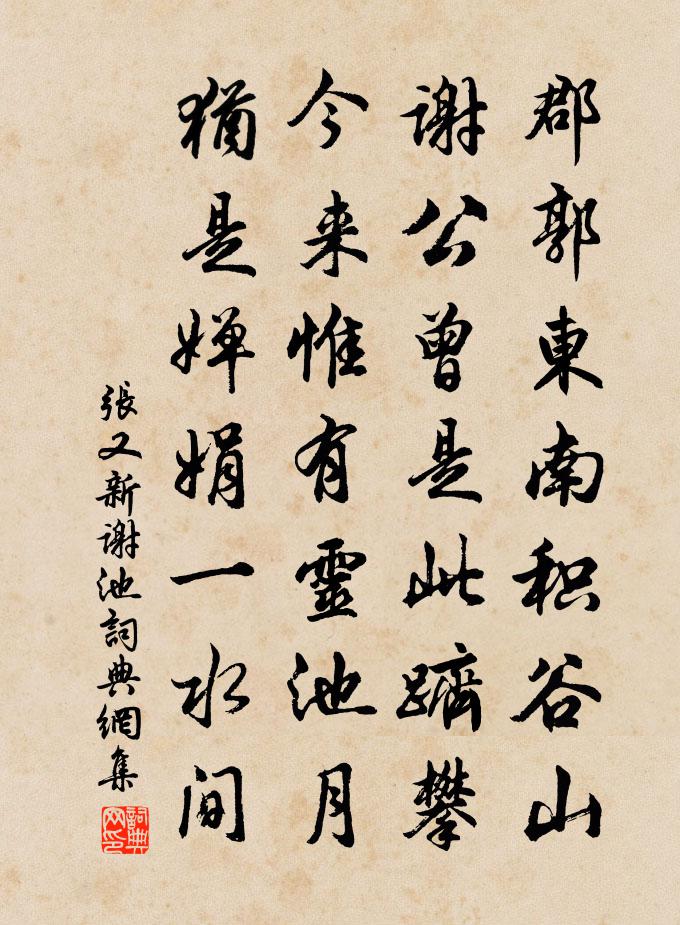 郡郭東南积谷山
謝公曾是此躋攀
今来惟有靈池月
猶是嬋娟一水间
張又新謝池詞典網集
詞典网印